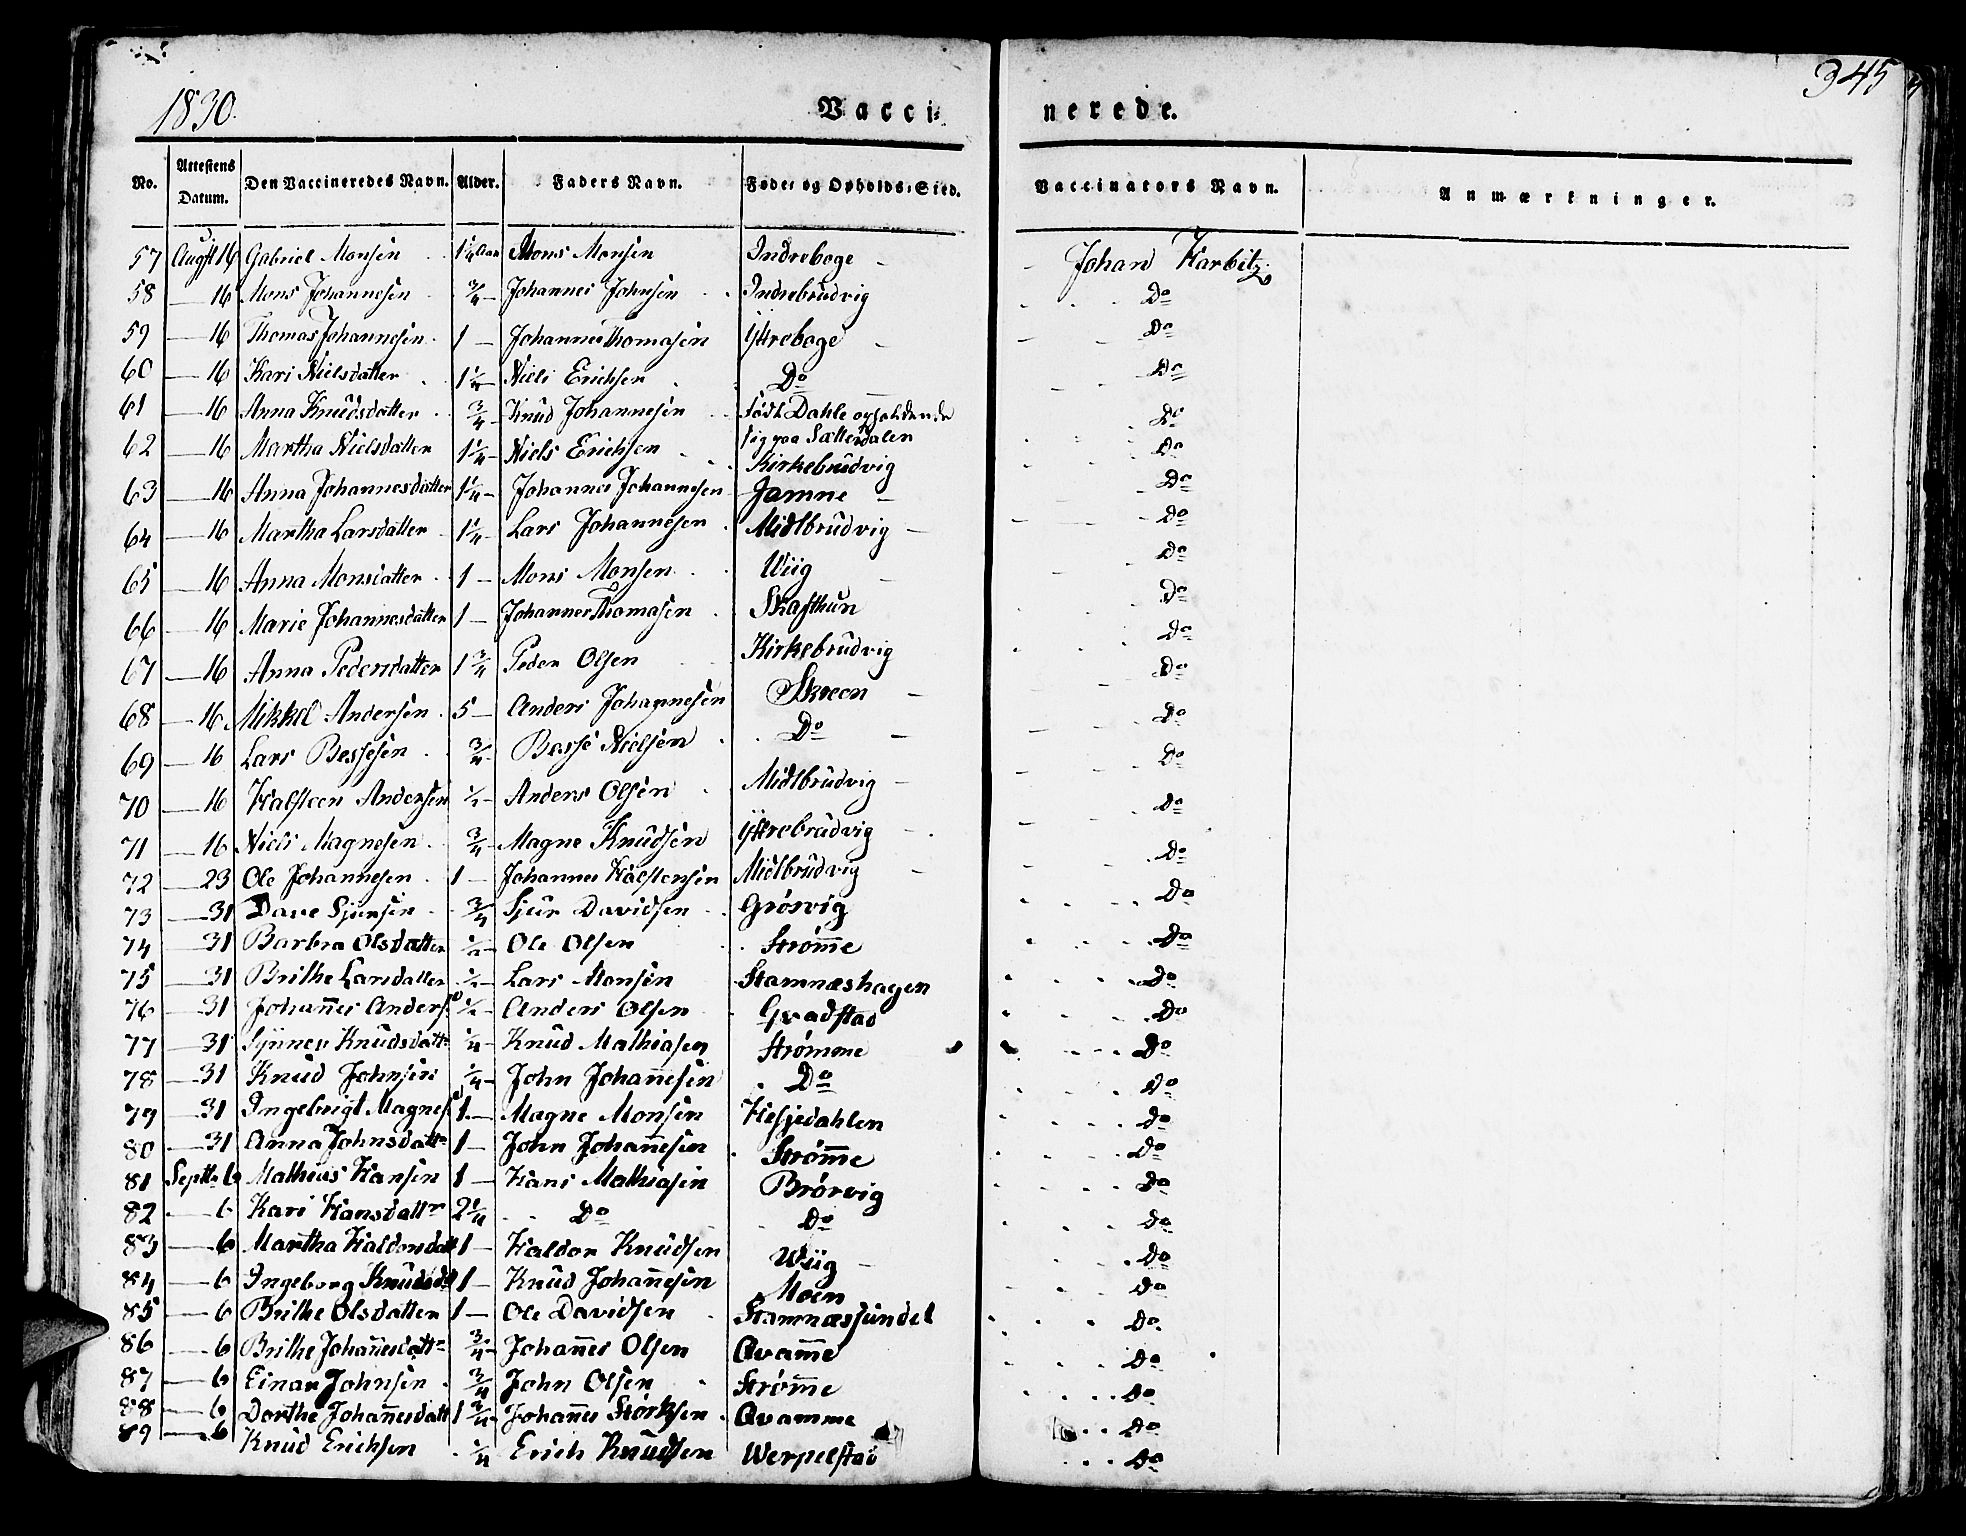 345
1830. Vacci= nerede.
No. Attestens Datum. Den Vaccineredes Navn. Alder. Faders Navn. Føde= og Opholds=Sted. Vaccinators Navn. Anmærkninger.
57 Augst 16 Gabriel Monsen 1 1/4 Aar Mons Monsen Indreboge Johan Harbitz
58 — 16 Mons Johannesen 3/4 — Johannes Johnsen Indrebrudvig Do
59 — 16 Thomas Johannesen 1 — Johannes Thomasen Ÿttreboge Do
60 — 16 Kari Nielsdatter 1 1/4 — Niels Erichsen Do Do
61 — 16 Anna Knudsdatter 3/4 — Knud Johannesen Født Dahle opholdende Do
sig paa Sætterdalen
62 — 16 Martha Nielsdatter 1 1/4 — Niels Erichsen Kirkebrudvig Do
63 — 16 Anna Johannesdatter 1 1/4 — Johannes Johannesen Jamne Do
64 — 16 Martha Larsdatter 1 1/4 Lars Johannesen Midlbrudvig Do
65 — 16 Anna Monsdatter 1 — Mons Monsen Wiig Do
66 — 16 Marie Johannesdatter 1 — Johannes Thomasen Skafthun Do
67 — 16 Anna Pedersdatter 1 3/4 Peder Olsen Kirkebrudvig Do
68 — 16 Mikkel Andersen 5 — Anders Johannesen Skreen Do
69 — 16 Lars Bessesen 3/4 — Besse Nielsen Do Do
70 — 16 Halsteen Andersen 1/2 — Anders Olsen Midlbrudvig Do
71 — 16 Niels Magnesen 3/4 — Magne Knudsen Ÿttrebrudvig Do
72 — 23 Ole Johannesen 1 — Johannes Halstensen Midlbrudvig Do
73 — 31 Dave Sjursen 3/4 Sjur Davidsen Grøsvig Do
74 — 31 Barbra Olsdatter 1/2 — Ole Olsen Strøm̄e Do
75 — 31 Brithe Larsdatter 1/2 — Lars Monsen Stamnæshagen Do
76 — 31 Johan̄es Anders 1/2 — Anders Olsen Gradstad Do
77 — 31 Synnev Knudsdattr 1/4 — Knud Mathiasen Strømme Do
78 — 31 Knud Johnsen 1/4 — John Johan̄esen Do Do
79 — 31 Ingebrigt Magnes 1 — Magne Monsen Hesjedahlen Do
80 — 31 Anna Johnsdattr 1 — John Johan̄esen Strøm̄e Do
81 Septbr 6 Mathias Hansen 1 — Hans Mathiasen Brørvig Do
82 — 6 Kari Hansdattr 2 1/4 Do Do Do
83 — 6 Martha Haldorsdatt 1 — Haldor Knudsen Wiig Do
84 — 6 Ingeborg Knudsdt 1 — Knud Johan̄esen Moen Do
85 — 6 Brithe Olsdatter 1 — Ole Davidsen Stamnæssundet Do
86 — 6 Brithe Johan̄esdattr 3/4 — Johan̄es Olsen Qvam̄e Do
87 — 6 Einar Johnsen 3/4 John Olsen Strøm̄e Do
88 — 6 Dorthe Johan̄esdatt 1 3/4 — Johan̄es Størksen Qvamme Do
89 — 6 Knud Erichsen 1/4 Erich Knudsen Werpelstad Do